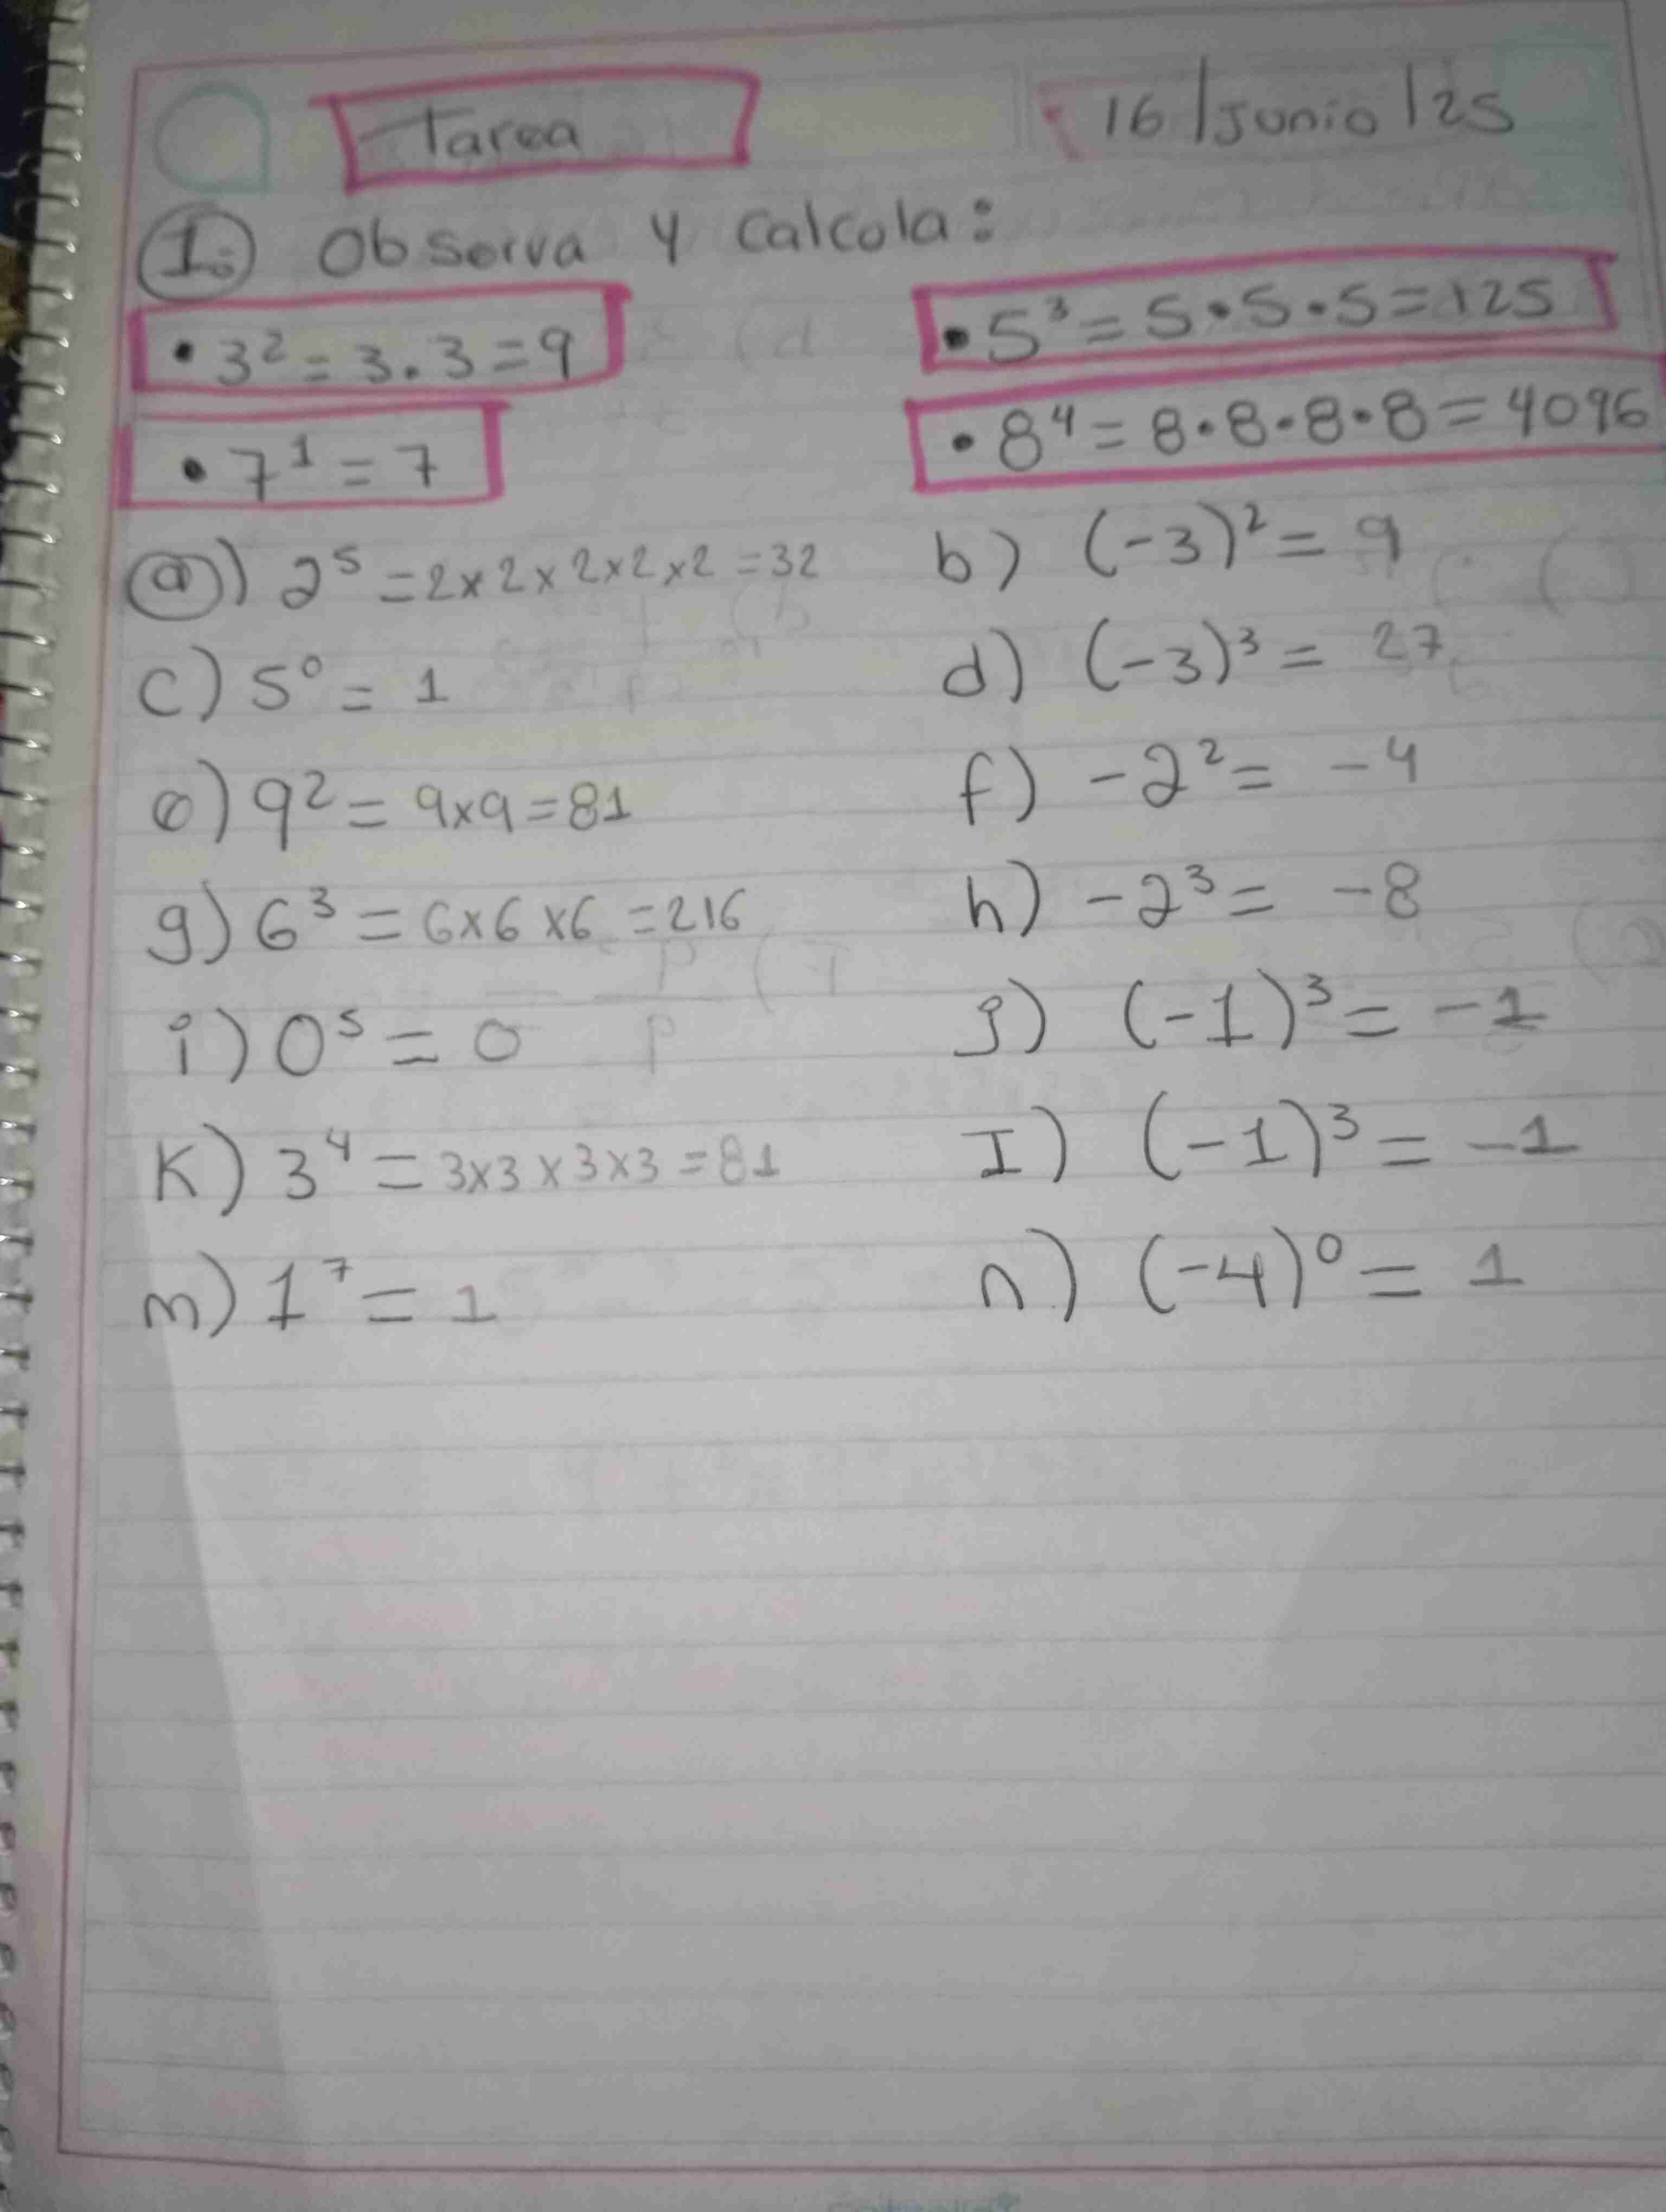 Tarea 16/Junio/25
1. Observa y calcola:
• 3² = 3 . 3 = 9 • 5³ = 5 • 5 • 5 = 125
• 7¹ = 7 • 8⁴ = 8 • 8 • 8 • 8 = 4096
a) 2⁵ = 2 x 2 x 2 x 2 x 2 = 32 b) (-3)² = 9
c) 5⁰ = 1 d) (-3)³ = 27
e) 9² = 9x9 = 81 f) -2² = -4
g) 6³ = 6x6 x6 = 216 h) -2³ = -8
i) 0⁵ = 0 j) (-1)³ = -1
K) 3⁴ = 3x3 x 3x3 = 81 I) (-1)³ = -1
m) 1⁷ = 1 n) (-4)⁰ = 1